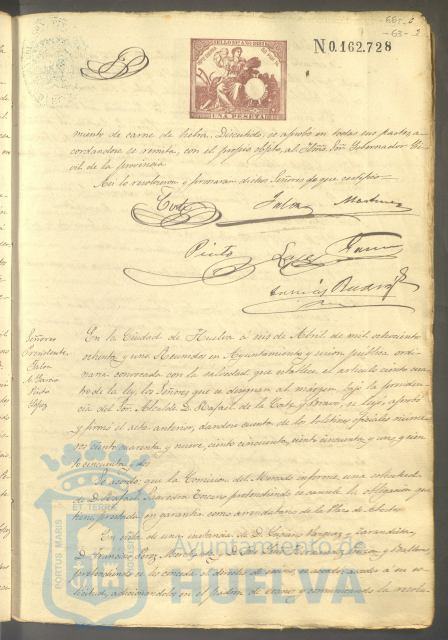 66-6
-63- 2
SELLO 11º AÑO 1881
UNA PESETA
N 0.162.728
miento de carne de hebra. Discutido, se aprobó en todas sus partes a-
cordandose se remita, con el propio objeto, al Sor. Gobernador Ci-
vil de la provincia
Asi lo resolvieron y firmaran dichos Señores de que certifico
Corte Jalon Martinez
Pinto Lopez Garcia
Señores
Presidente
Jalon
Garcia
Pinto
Lopez
En la Ciudad de Huelva á seis de Abril de mil ochocientos
ochenta y uno Reunidos en Ayuntamiento y sesion publica ordi-
naria convocada con la salvedad que establece el articulo ciento cua-
tro de la ley, los Señores que se designan al márgen, bajo la presiden-
cia del Sor. Alcalde D. Rafael de la Corte y Bravo, se leyó, aprobó
y firmó el acta anterior, dandose cuenta de los boletines oficiales núme-
ros ciento cuarenta y nueve, ciento cincuenta, ciento cincuenta y uno, y cien-
to cincuenta y dos
Se acordó que la Comision del Mercado informe una solicitud
de D. Rafael pretendiendo se cancele la obligacion que
tiene prestada en garantia como arrendatario de la Plaza de Abastos
En vista de una instancia de D. Vazquez
D. Francisco Perez
pretendiendo se les conceda el derecho de á su so-
licitud, adicionandolos en el padron de y comunicando la resolu-
PORTUS MARIS ET TERRÆ CUSTODIA
Ayuntamiento de
HUELVA